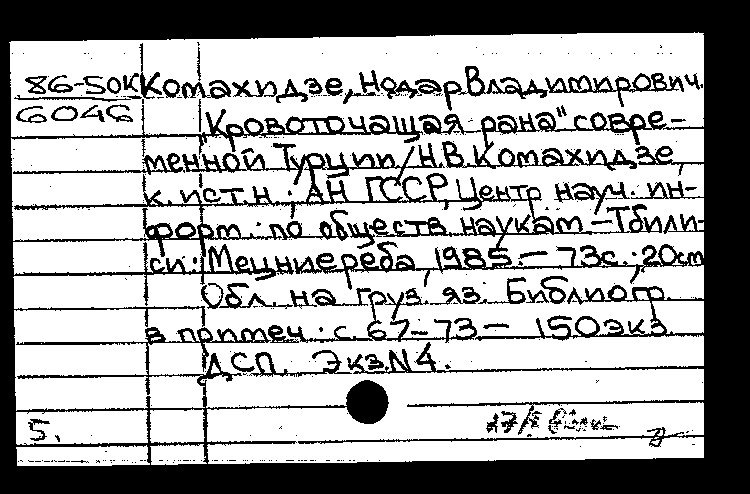 86-50К Комахидзе, Нодар Владимирович.
6046
"Кровоточащая рана" совре-
менной Турции / Н.В. Комахидзе,
к. ист. н.; АН ГССР, Центр науч. ин-
форм. по обществ. наукам. — Тбили-
си: Мецниереба, 1985. — 73с.; 20см
Обл. на груз. яз. Библиогр.
в примеч.: с. 67-73. — 150 экз.
ДСП. Экз. N4.
5.